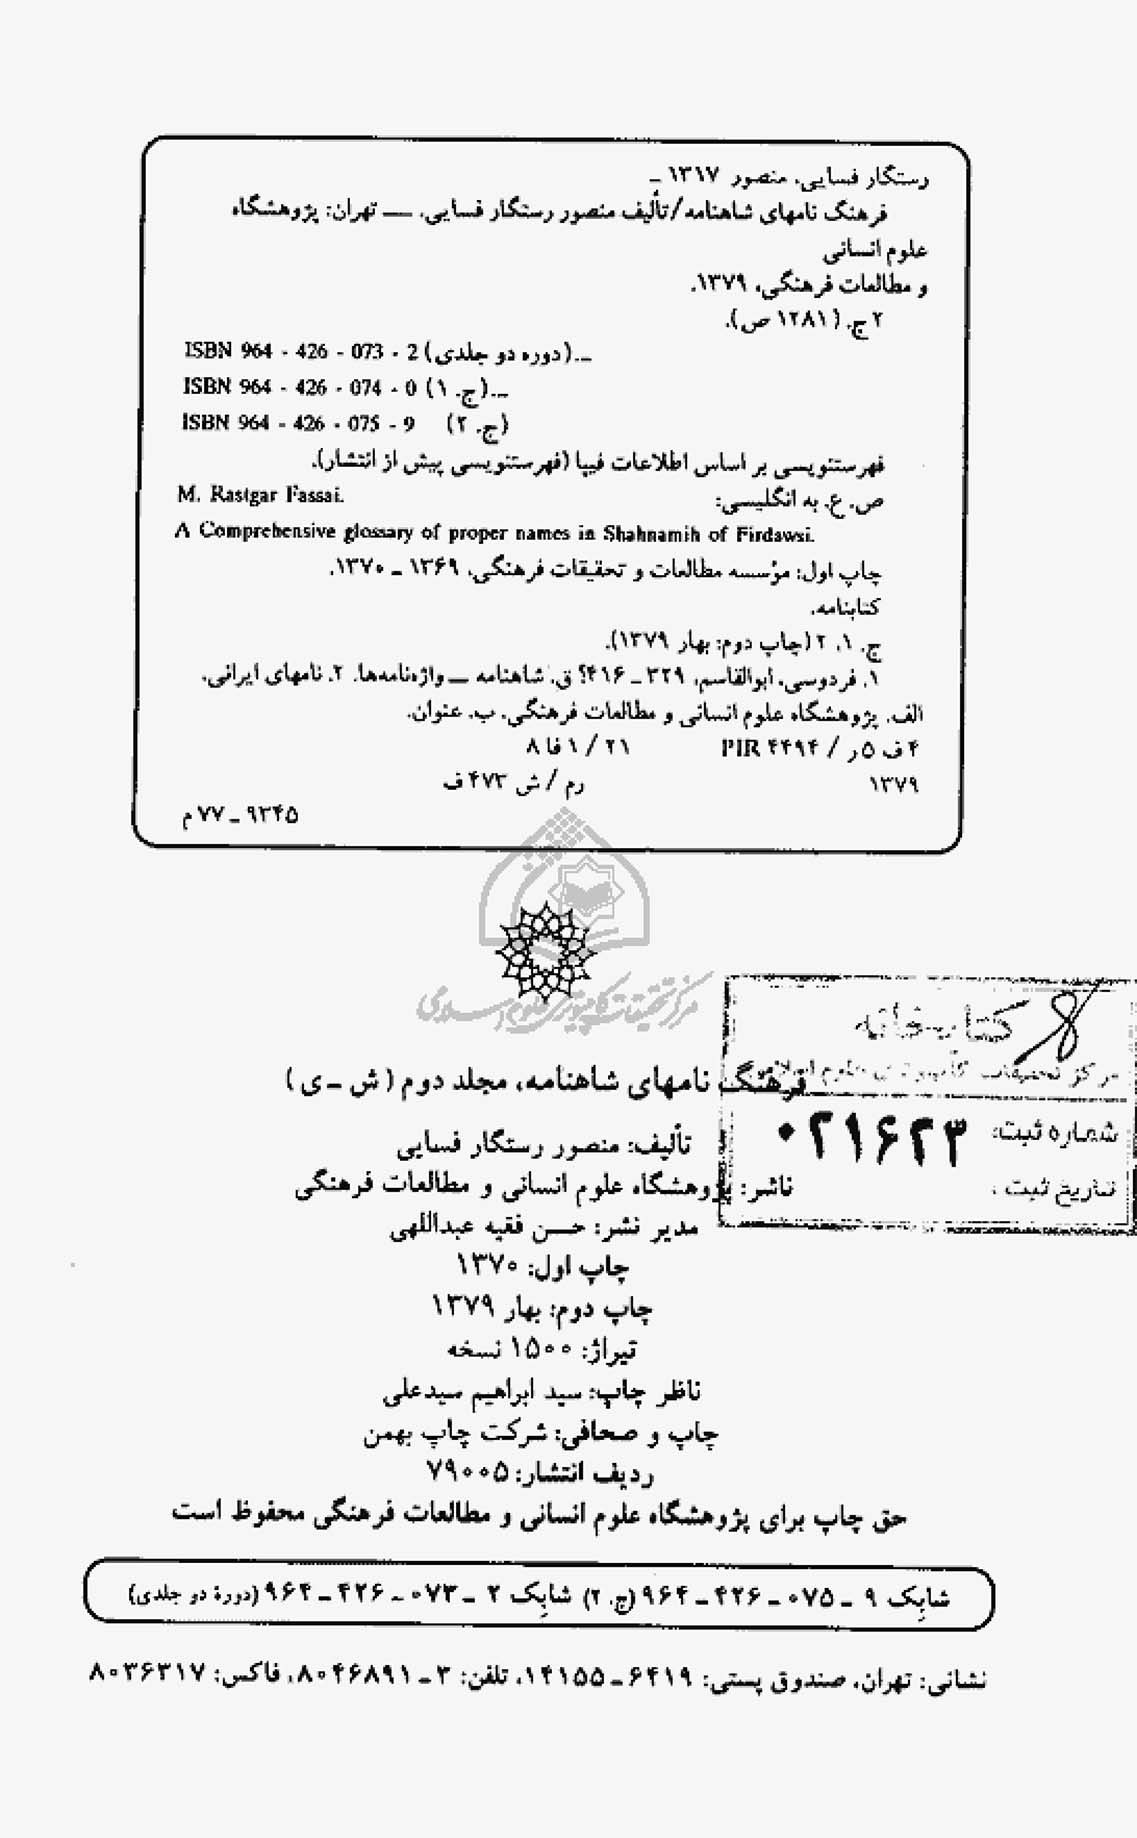 رستگار فسایی، منصور ۱۳۱۷ ـ
فرهنگ نامهای شاهنامه/تألیف منصور رستگار فسایی. ـــ تهران: پژوهشگاه
علوم انسانی
و مطالعات فرهنگی، ۱۳۷۹.
۲ ج. (۱۲۸۱ ص).
ISBN 964 - 426 - 073 - 2 (دوره دو جلدی)...
ISBN 964 - 426 - 074 - 0 (ج. ۱)...
ISBN 964 - 426 - 075 - 9 (ج. ۲)
فهرستنویسی بر اساس اطلاعات فیپا (فهرستنویسی پیش از انتشار).
ص. ع. به انگلیسی: M. Rastgar Fassai.
A Comprehensive glossary of proper names in Shahnamih of Firdawsi.
چاپ اول: مؤسسه مطالعات و تحقیقات فرهنگی، ۱۳۶۹ ـ ۱۳۷۰.
کتابنامه.
ج. ۱، ۲ (چاپ دوم: بهار ۱۳۷۹).
۱. فردوسی، ابوالقاسم، ۳۲۹ ـ ۴۱۶؟ ق. شاهنامه ـــ واژه‌نامه‌ها. ۲. نامهای ایرانی.
الف. پژوهشگاه علوم انسانی و مطالعات فرهنگی. ب. عنوان.
۴ ف ۵ ر / PIR ۴۴۹۴ ۲۱ / ۱ فا ۸
۱۳۷۹ رم / ش ۴۷۳ ف
۹۳۴۵ ـ ۷۷ م
مرکز تحقیقات کامپیوتری علوم اسلامی
کتابخانه
مرکز تحقیقات کامپیوتری علوم اسلامی
شماره ثبت: ۰۲۱۶۲۳
تاریخ ثبت:
فرهنگ نامهای شاهنامه، مجلد دوم (ش ـ ی)
تألیف: منصور رستگار فسایی
ناشر: پژوهشگاه علوم انسانی و مطالعات فرهنگی
مدیر نشر: حسن فقیه عبداللهی
چاپ اول: ۱۳۷۰
چاپ دوم: بهار ۱۳۷۹
تیراژ: ۱۵۰۰ نسخه
ناظر چاپ: سید ابراهیم سیدعلی
چاپ و صحافی: شرکت چاپ بهمن
ردیف انتشار: ۷۹۰۰۵
حق چاپ برای پژوهشگاه علوم انسانی و مطالعات فرهنگی محفوظ است
شابک ۹ ـ ۰۷۵ ـ ۴۲۶ ـ ۹۶۴ (ج. ۲) شابک ۲ ـ ۰۷۳ ـ ۴۲۶ ـ ۹۶۴ (دورهٔ دو جلدی)
نشانی: تهران، صندوق پستی: ۶۴۱۹ ـ ۱۴۱۵۵، تلفن: ۳ ـ ۸۰۴۶۸۹۱، فاکس: ۸۰۳۶۳۱۷